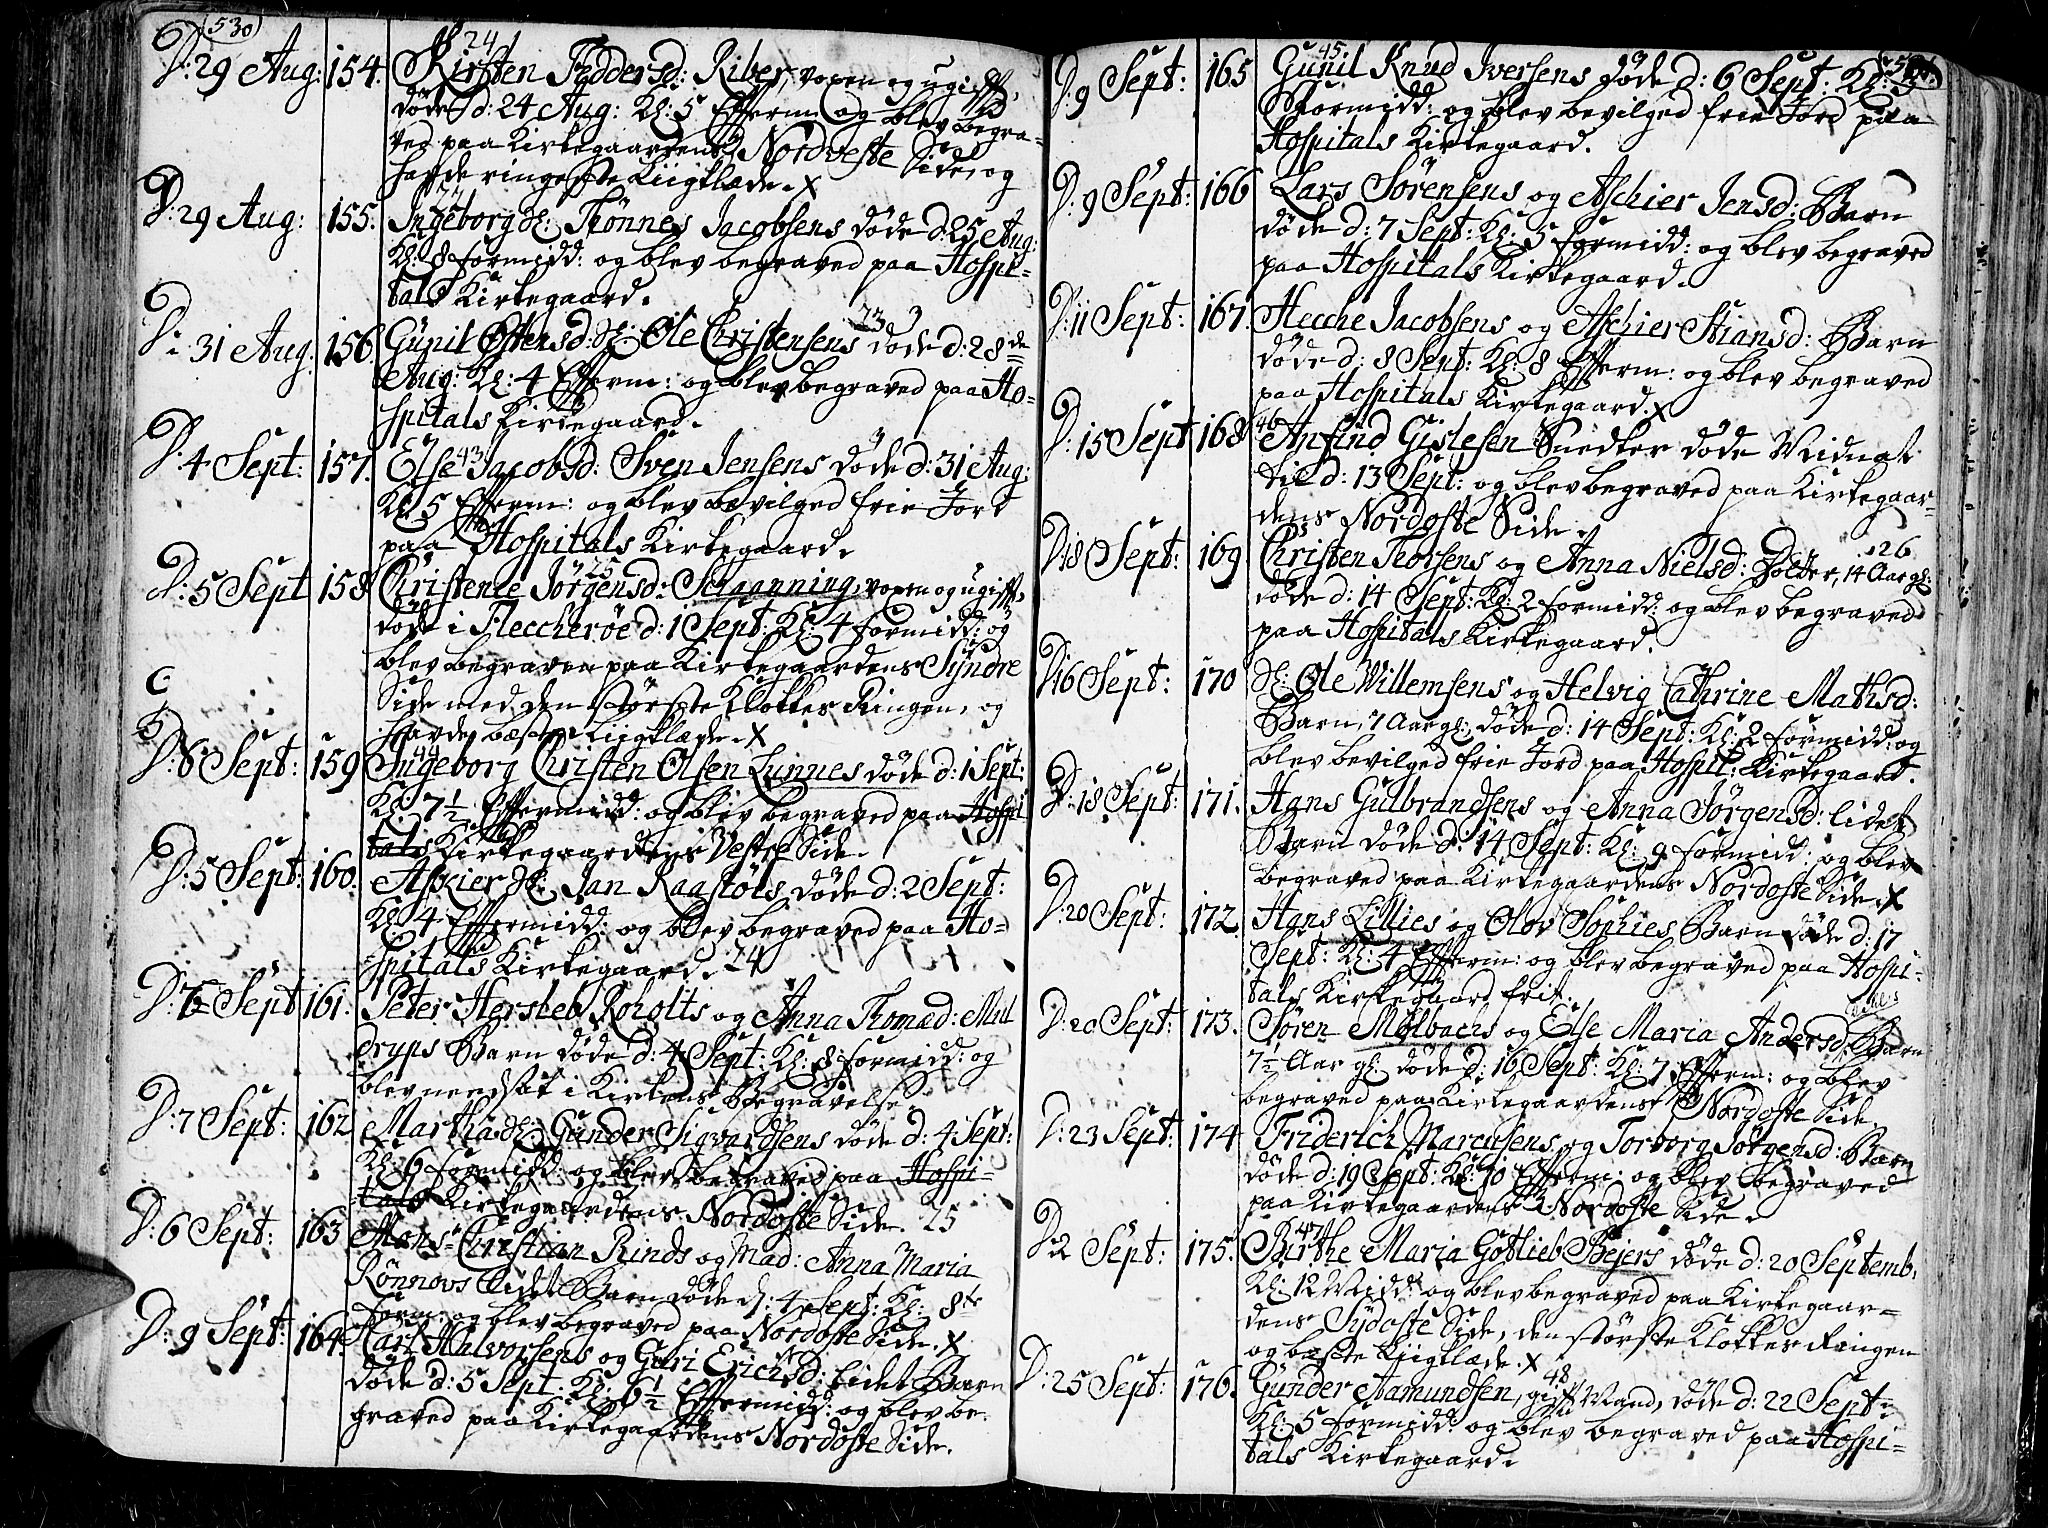 530
24
D: 29 Aug: 154. Kirsten Feddersd: Riber, voxen og ugift,
døde d: 24 Aug: Kl: 5 Efterm og blev begra-
ven paa Kirkegaardens Nordveste Side, og
havde ringeste Liigklæde. X
D: 29 Aug: 155. Ingeborg Sl: Tønnes Jacobsens døde d: 25 Aug:
Kl: 8 formidd: og blev begraved paa Hospi-
tals Kirkegaard.
23
D: 31 Aug: 156. Gunil Estensd: Sl: Ole Christensens døde d: 28de
Aug: Kl: 4 Efterm: og blev begraved paa Ho-
spitals Kirkegaard.
43
D: 4 Sept: 157. Else Jacobsd: Sven Jensens døde d: 31 Aug:
Kl: 5 Efterm: og blev bevilged frie Jord
paa Hospitals Kirkegaard.
25
D: 5 Sept 158 Christence Jørgensd: Schaanning, voxen og ugift,
døde i Fleccherøe d: 1 Sept: Kl: 4 formidd: og
blev begraven paa Kirkegaardens Syndre
Side med den største Klokkes Ringen, og
havde beste Liigklæde. X
44
D: 8 Sept: 159 Ingeborg Christen Olsen Lunnes døde d: 1 Sept:
Kl: 7½ Eftermidd: og blev begraved paa Hospi
tals Kirkegaardens Vestre Side.
D: 5 Sept: 160. Aschier Sl: Jan Raastøls døde d: 2 Sept:
Kl: 4 Eftermidd: og blev begraved paa Ho-
spitals Kirkegaard. 24
D: 7 Sept 161. Peter Hersleb Roholts og Anna Thomad: Mul
dryps Barn døde d: 4 Sept: Kl: 8 formidd: og
blev needsat i Kirkens Begravelse.
D: 7 Sept: 162 Martha Sl: Gunder Sigvardsens døde d: 4 Sept:
Kl: 6 formidd: og blev begraved paa Hospi-
tals Kirkegaardens Nordoste Side. 25
D: 6 Sept: 163 Mons: Christian Rinds og Mad: Anna Maria
Rønnovs lidet Barn døde d: 4 Sept: Kl: 8te
form: og blev begraved paa Nordoste Side. X
D: 9 Sept: 164. Karl Halvorsens og Guri Erichsd: lidet Barn
døde d: 5 Sept: Kl: 6½ Eftermidd: og blev be-
graved paa Kirkegaardens Nordoste Side.
45.
D: 9 Sept: 165 Gunil Knud Iversens døde d: 6 Sept: Kl: 9
Formidd: og blev bevilged frie Jord paa
Hospitals Kirkegaard.
D: 9 Sept: 166 Lars Sørensens og Aschier Jensd: Barn
døde d: 7 Sept: Kl: 5 formidd: og blev begraved
paa Hospitals Kirkegaard.
D: 11 Sept: 167. Hecche Jacobsens og Aschier Stiansd: Barn
døde d: 8 Sept: Kl: 8 Efterm: og blev begraved
paa Hospitals Kirkegaard. X
46
D: 15 Sept 168 Anfind Gislesen Snedker døde Midnat
tid d: 13 Sept: og blev begraved paa Kirkegaar-
dens Nordoste Side.
26
D: 18 Sept: 169 Christen Thorsens og Anna Nielsd: Dotter, 14 Aar gl:
døde d: 14 Sept: Kl: 2 formidd: og blev begraved
paa Hospitals Kirkegaard.
D: 16 Sept: 170 Sl: Ole Willemsens og Helvig Cathrine Mathsd:
Barn, 7 Aar gl: døde d: 14 Sept: Kl: 2 formidd: og
blev bevilged frie Jord paa Hospit: Kirkegaard.
D: 18 Sept: 171. Hans Gulbrandsens og Anna Jørgensd: lidet
Barn døde d: 14 Sept: Kl: 9 formidd: og blev
begraved paa Kirkegaardens Nordoste Side. X
D: 20 Sept: 172. Hans Lillies og Olov Sophies Barn døde d: 17
Sept: Kl: 4 Efterm: og blev begraved paa Hospi-
tals Kirkegaard frit.
D: 20 Sept: 173. Søren Mølbachs og Else Maria Andersd: Barn
7½ Aar gl: døde d: 16 Sept: Kl: 7 Efterm: og blev
begraved paa Kirkegaardens Nordoste Side.
D: 23 Sept: 174 Friderich Marcusens og Torborg Jørgensd: Barn
døde d: 19 Sept: Kl: 10 Efterm: og blev begraved
paa Kirkegaardens Nordoste Side.
47
D: 2 Sept: 175. Birthe Maria Gotlieb Beyers døde d: 20 Septemb.
Kl: 12 Midd: og blev begraved paa Kirkegaar-
dens Sydoste Side, den største Klokkes Ringen
og beste Liigklæde. X
48
D: 25 Sept: 176. Gunder Aamundsen, gift Mand, døde d: 22 Sept:
Kl: 5 formidd: og blev begraved paa Hospi-
tals Kirkegaard.